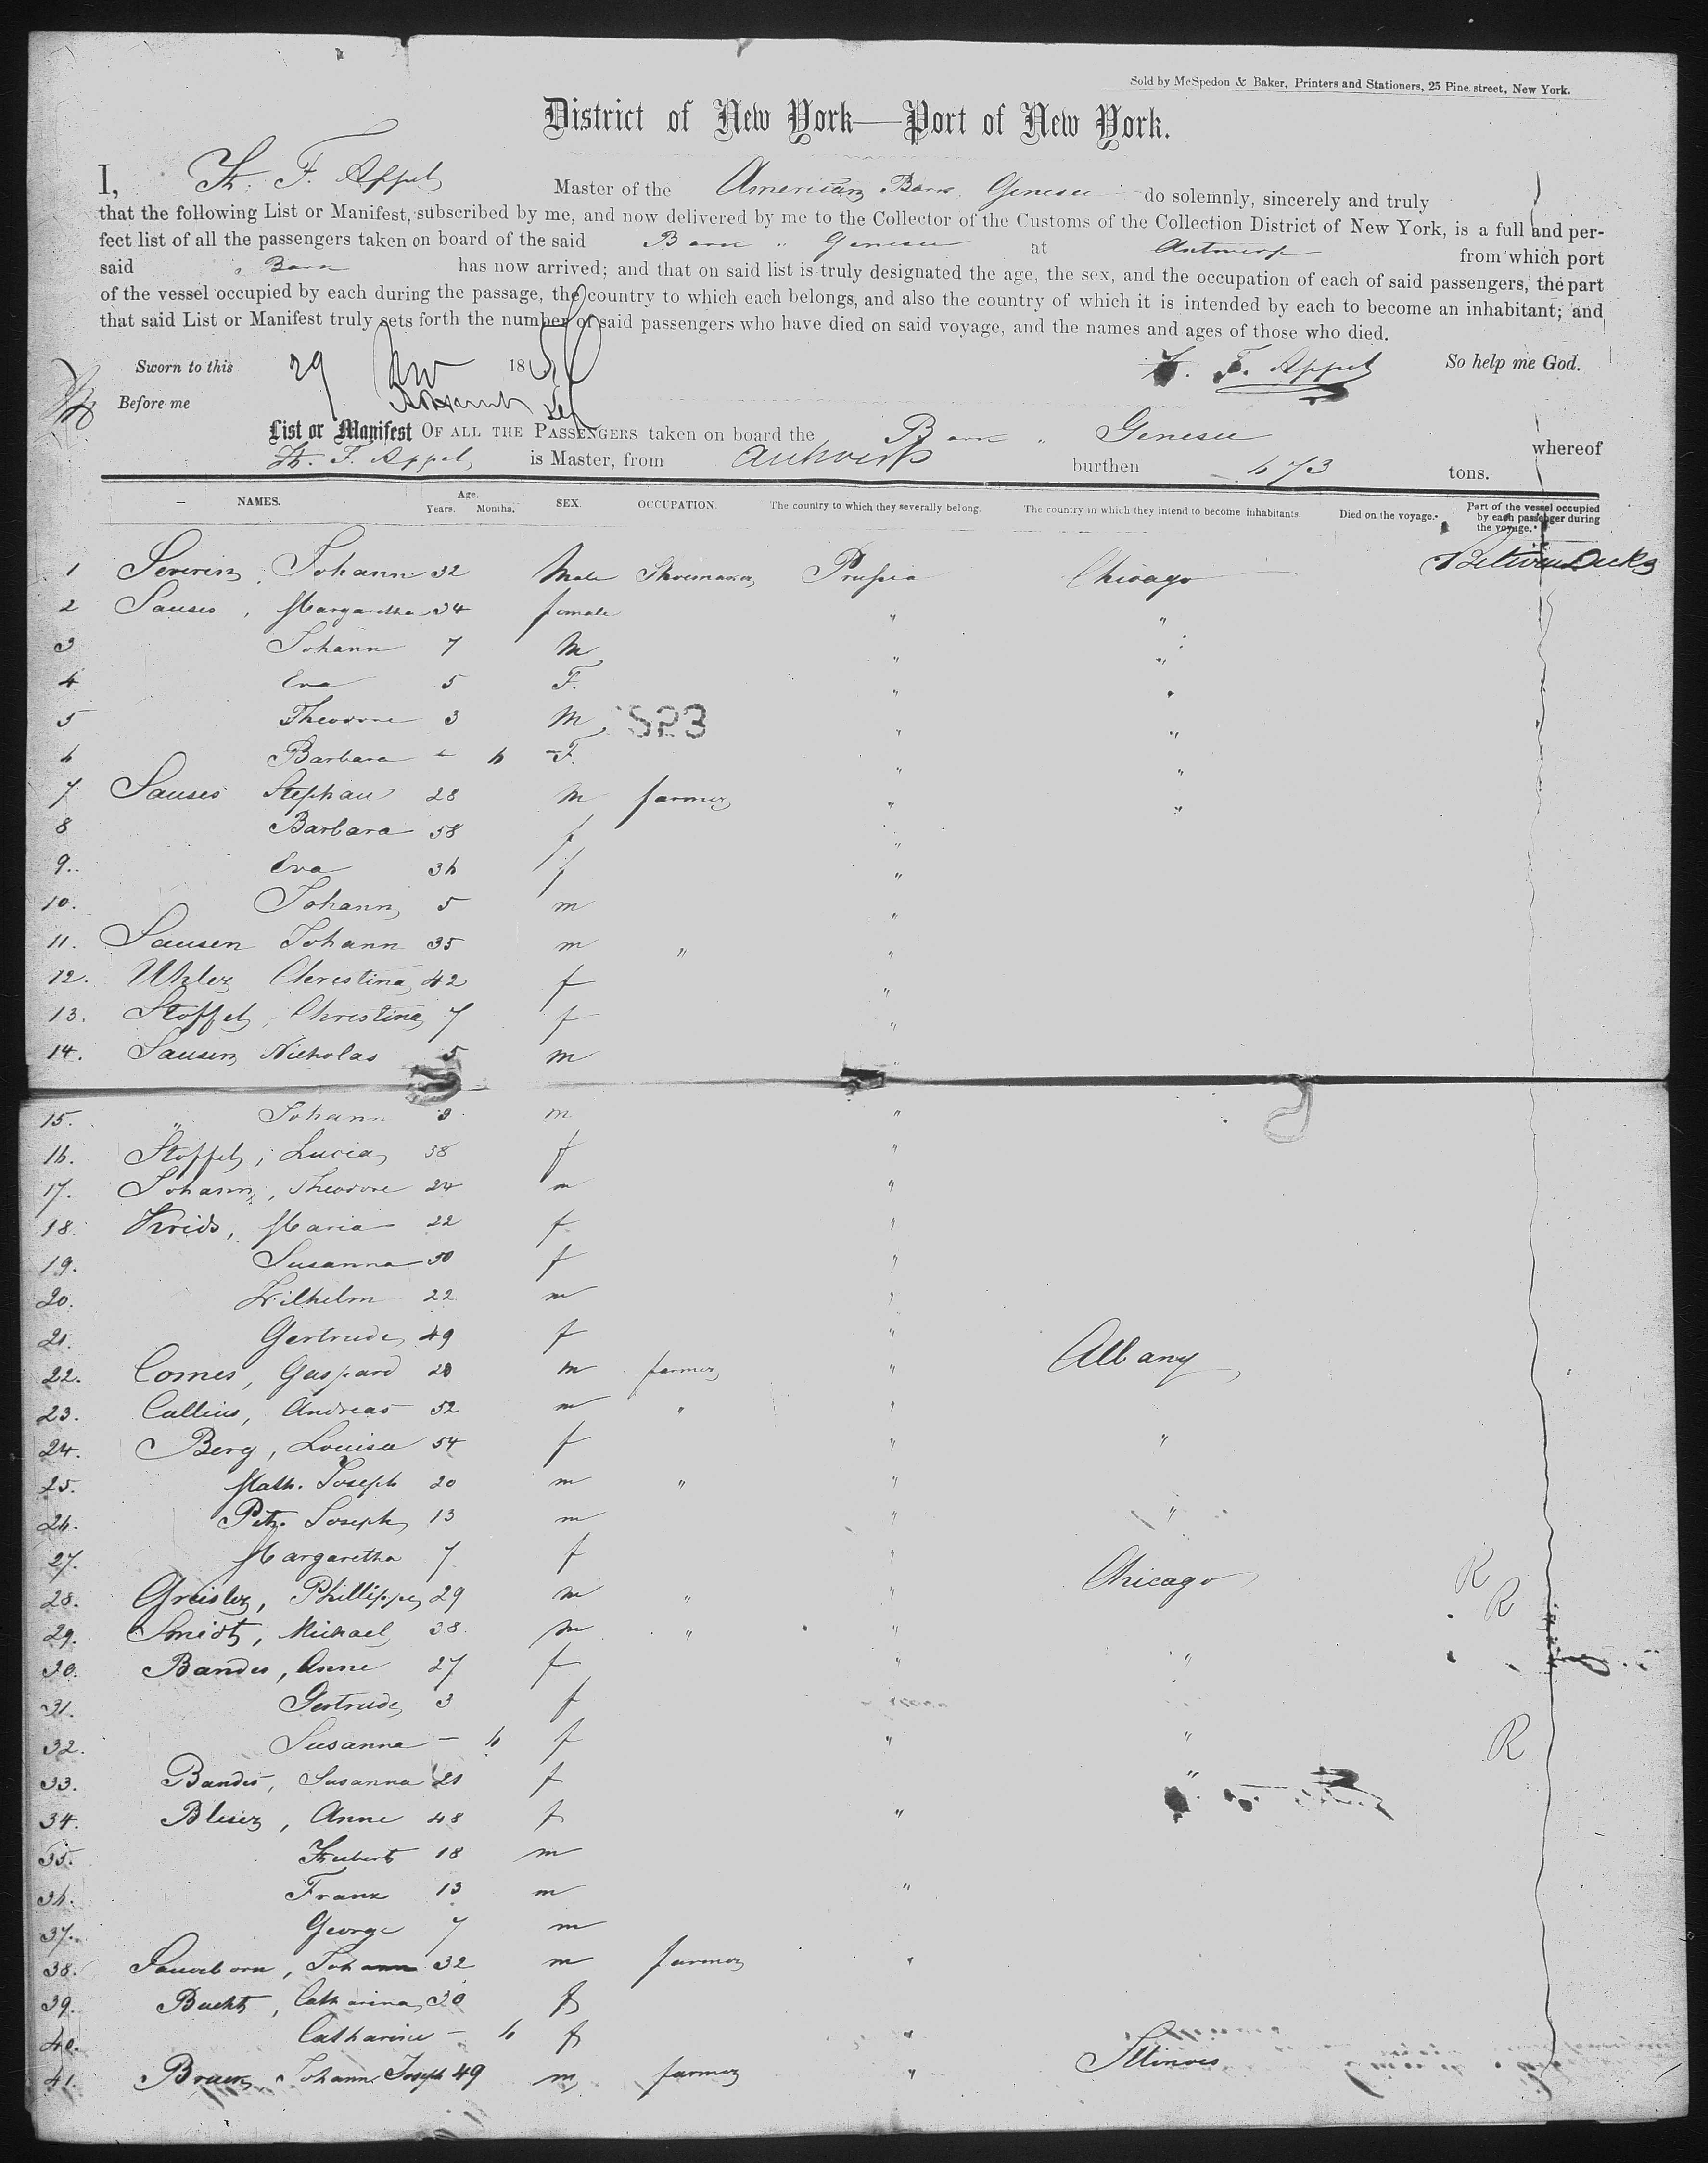 Sold by McSpedon & Baker, Printers and Stationers, 25 Pine street, New York.
District of New York—Port of New York.
I, H. F. Appel Master of the American Bark Genesee do solemnly, sincerely and truly
that the following List or Manifest, subscribed by me, and now delivered by me to the Collector of the Customs of the Collection District of New York, is a full and per-
fect list of all the passengers taken on board of the said Bark " Genesee at Antwerp from which port
said " Bark has now arrived; and that on said list is truly designated the age, the sex, and the occupation of each of said passengers, the part
of the vessel occupied by each during the passage, the country to which each belongs, and also the country of which it is intended by each to become an inhabitant; and
that said List or Manifest truly sets forth the number of said passengers who have died on said voyage, and the names and ages of those who died.
Sworn to this 29 Nov 185 H. F. Appel So help me God.
Before me
List or Manifest OF ALL THE PASSENGERS taken on board the Bark " Genesee whereof
H. F. Appel is Master, from Antwerp burthen 473 tons.
NAMES. Age. Years. Months. SEX. OCCUPATION. The country to which they severally belong. The country in which they intend to become inhabitants. Died on the voyage. Part of the vessel occupied by each passenger during the voyage.
1 Severin, Johann 32 Male Shoemaker Prussia Chicago Between Decks
2 Sauses, Margaretha 34 female " "
3 Johann 7 M " "
4 Eva 5 F. " "
5 Theodore 3 M 823 " "
6 Barbara - 6 F. " "
7 Sauses Stephan 28 M farmer " "
8 Barbara 58 f "
9. Eva 36 f "
10. Johann 5 m "
11. Sausen Johann 35 m " "
12. Uhler Christina 42 f "
13. Stoffel, Christina 7 f "
14. Sausen Nicholas 5 m
15. " Johann 3 m "
16. Stoffel, Lucia 58 f "
17. Johann, Theodore 24 m "
18. Krids, Maria 22 f "
19. Susanna 50 f "
20. Wilhelm 22 m "
21. Gertrude 49 f "
22. Comes, Gaspard 28 m farmer " Albany
23. Callius, Andreas 52 m " "
24. Berg, Louisa 54 f " "
25. Math. Joseph 20 m " "
26. Petr. Joseph 13 m " "
27. Margaretha 7 f " Chicago R
28. Greisler, Phillippe 29 m " " R
29. Smidt, Michael 38 m " "
30. Bandes, Anne 27 f " "
31. Gertrude 3 f
32. Susanna - 6 f " " R
33. Bandes, Susanna 21 f "
34. Bleser, Anne 48 f "
35. Hubert 18 m
36. Franz 13 m "
37. George 7 m
38. Sauerborn, Johann 32 m farmer "
39. Bucht, Catharina 30 f
40. Catharine - 6 f "
41. Brucker Johann Joseph 49 m farmer " Illinois